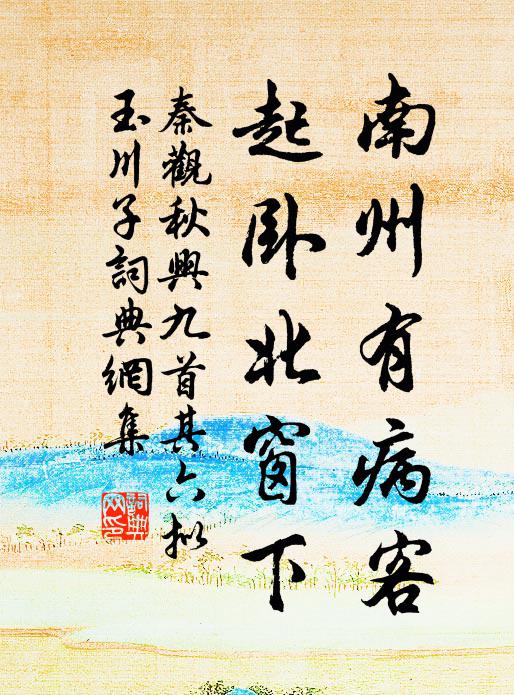 南州有病客
起卧北窗下
秦觀秋興九首其六拟
玉川子詞典網集
詞典網印